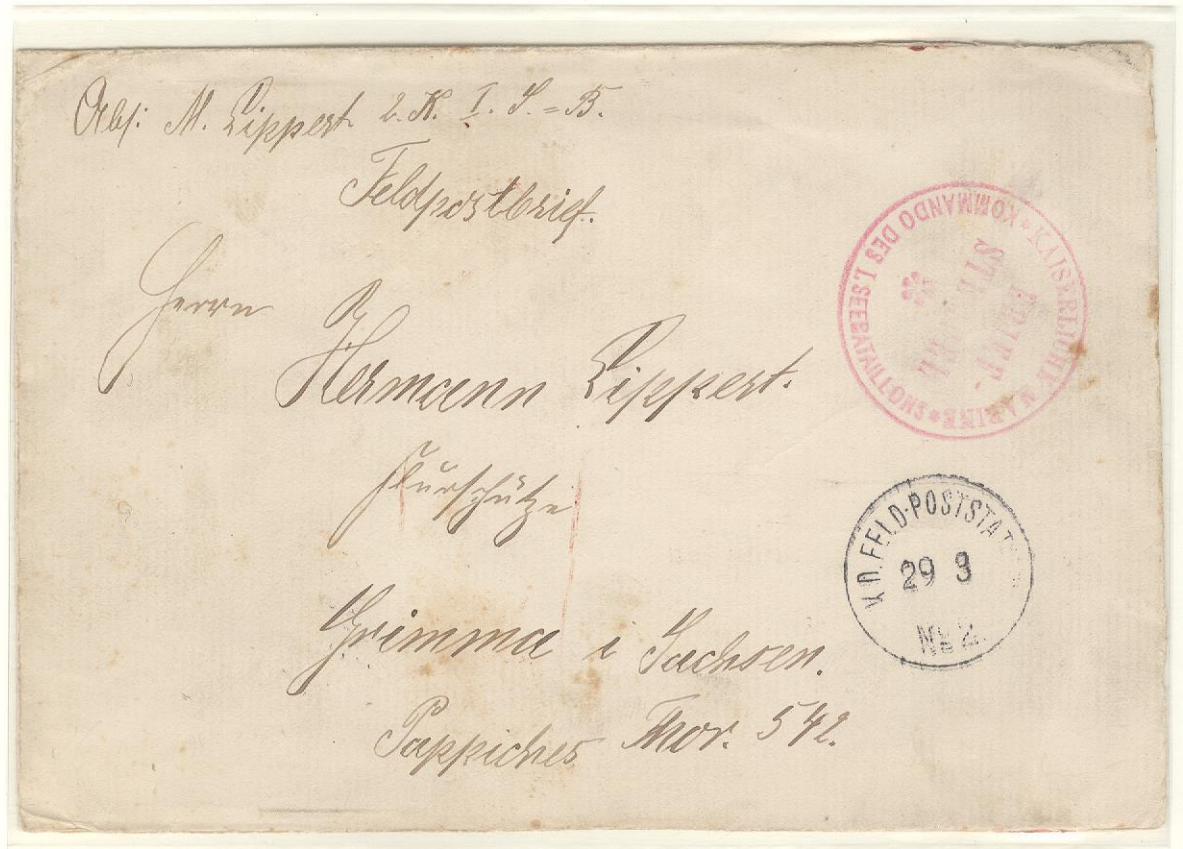 Abs: M. Lippert 2. K. I. S.=B.
Feldpostbrief.
Herrn
Hermann Lippert.
Flurschütze
Grimma i Sachsen.
Pappisches Thor. 542.
KAISERLICHE MARINE * KOMMANDO DES I. SEEBATAILLONS *
K.D. FELD-POSTSTAT
29 3
No 2.